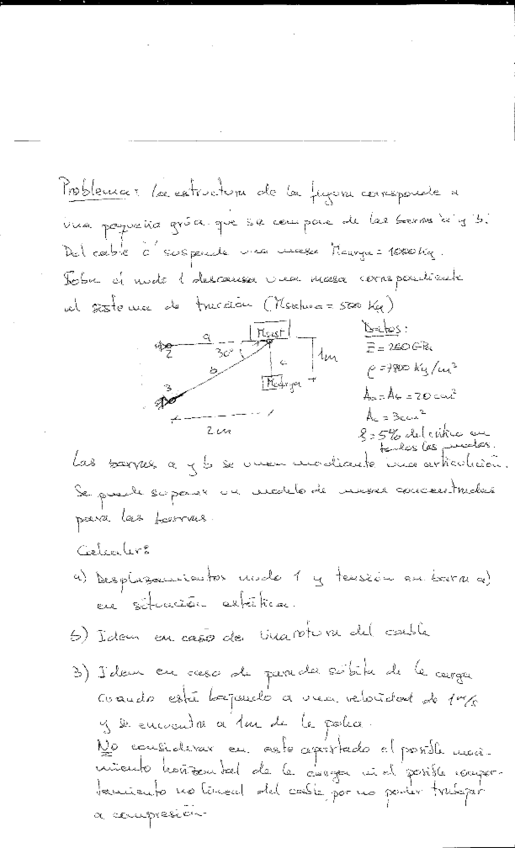 Problema: la estructura de la figura corresponde a
una pequeña grúa que se compone de las barras a y b.
Del cable c suspende una masa Mcarga = 1000 kg.
Sobre el nudo 1 descansa una masa correspondiente
al sistema de tracción (Msist = 500 Kg)
a Msist
2 30º
b c 1m
3 Mcarga
2 m
Datos:
E = 260 GPa
ρ = 7800 Kg/m³
Aa = Ab = 20 cm²
Ac = 3cm²
ξ = 5% del crítico en
todos los modos.
Las barras a y b se unen mediante una articulación.
Se puede suponer un modelo de masas concentradas
para las barras.
Calcular:
a) Desplazamientos nudo 1 y tensión en barra a)
en situación estática.
b) Idem en caso de una rotura del cable
3) Idem en caso de parada súbita de la carga
cuando esté bajando a una velocidad de 1 m/s
y se encuentra a 1m de la polea.
No considerar en este apartado el posible movi-
miento horizontal de la carga ni el posible compor-
tamiento no lineal del cable por no poder trabajar
a compresión.